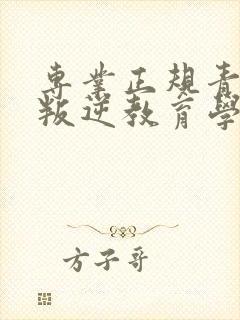 專業正規青
叛逆教育學
方子哥